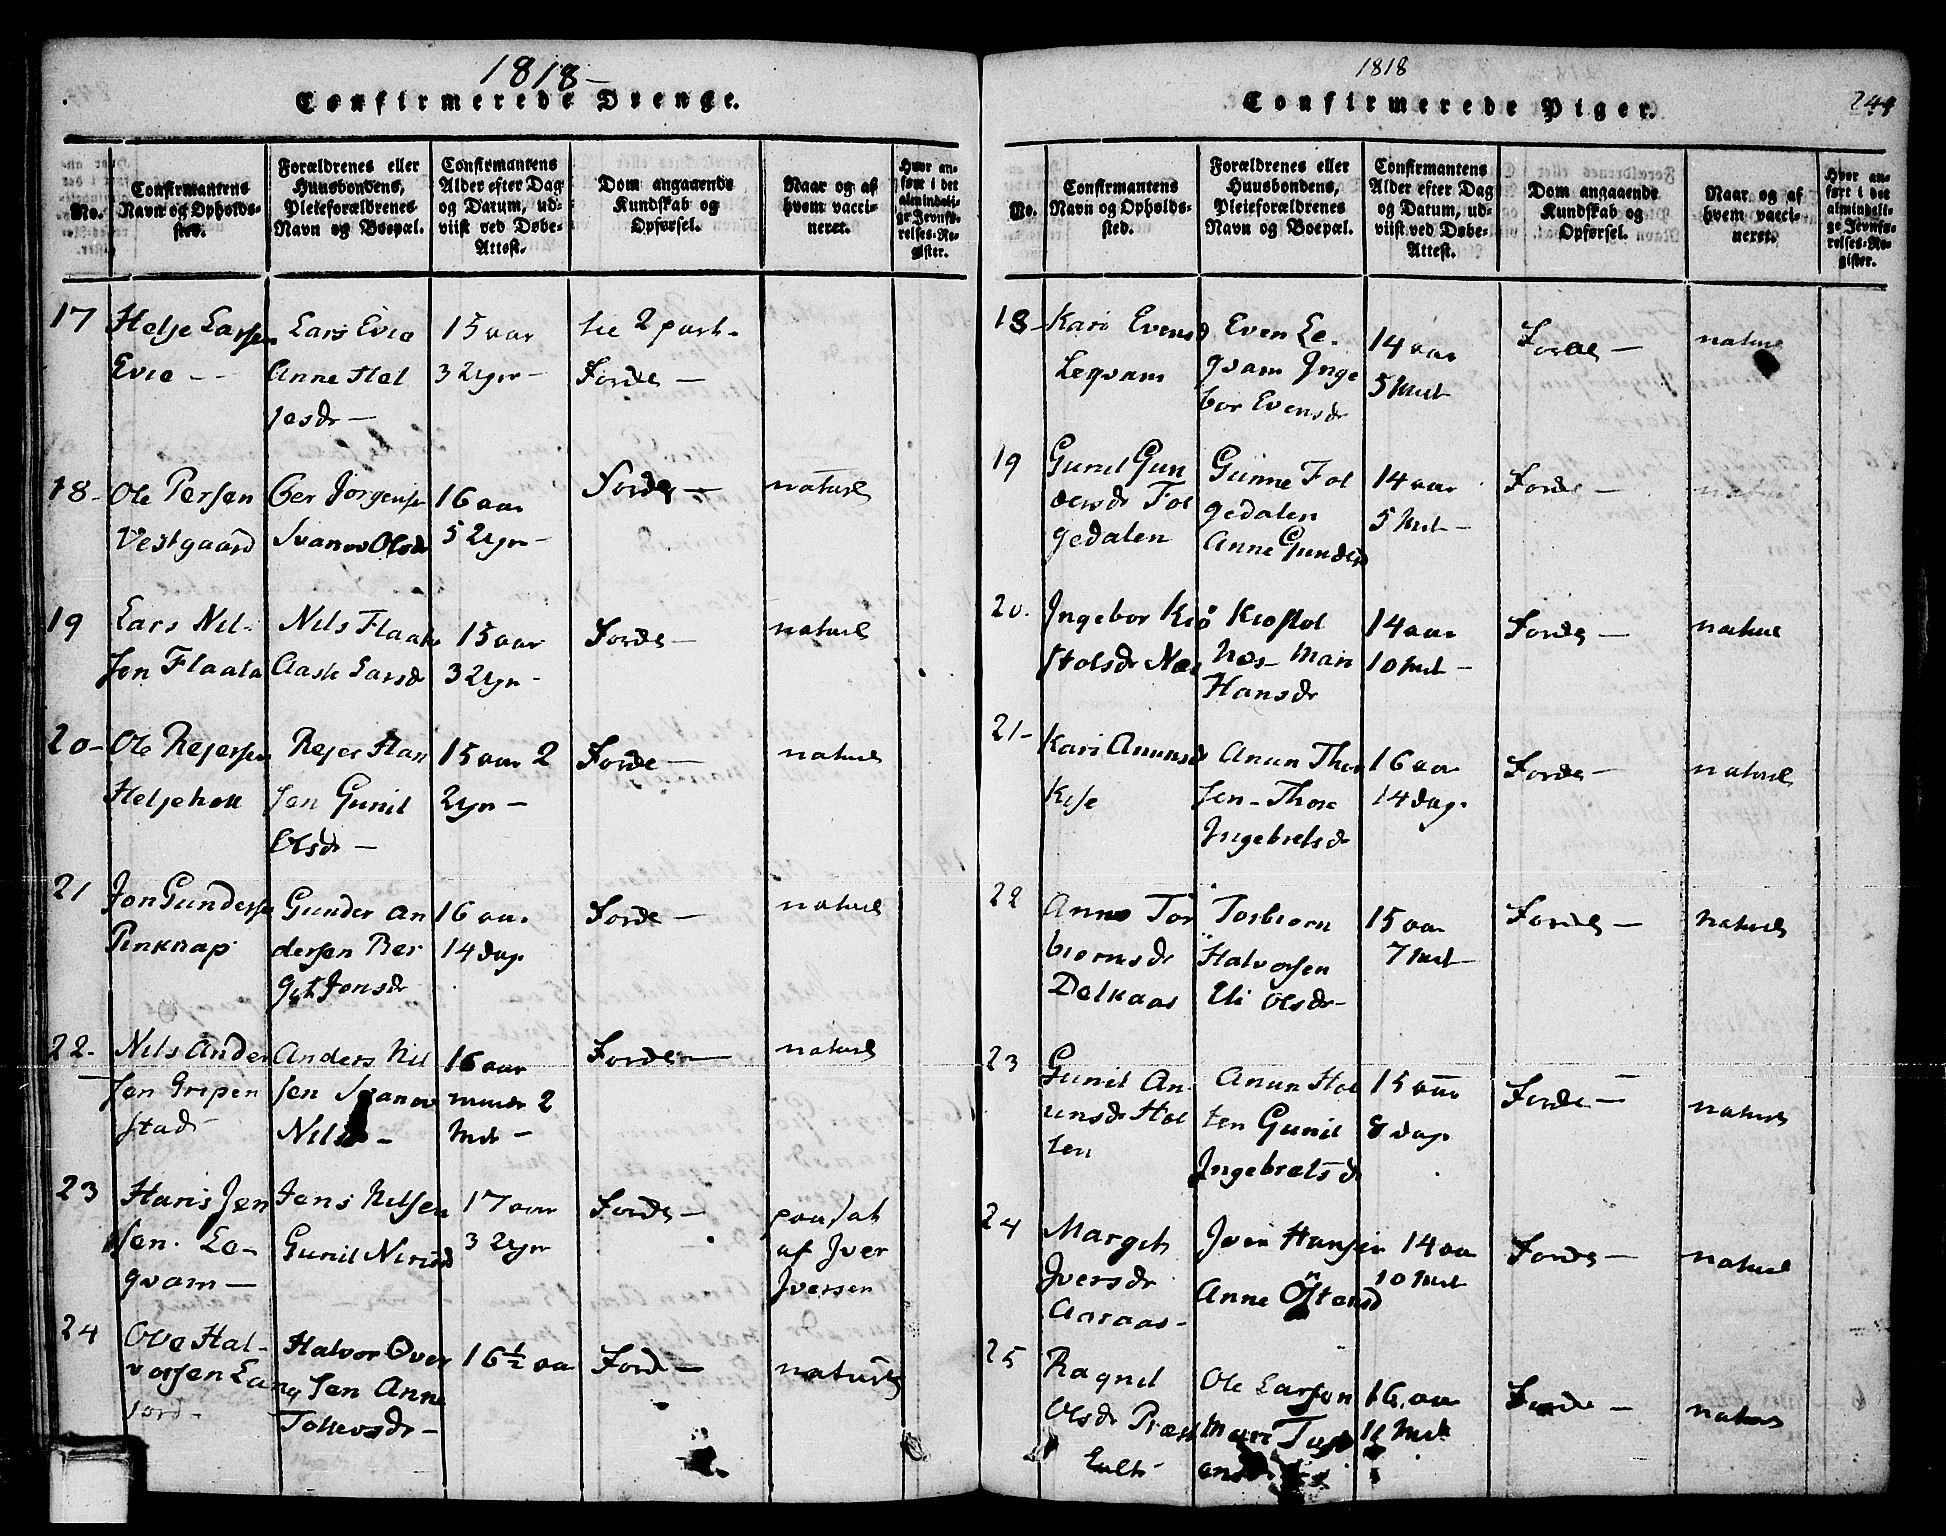 1818-
Confirmerede Drenge.
No.
Confirmantens
Navn og Opholds-
sted.
Forældrenes eller
Huusbondens,
Pleieforældrenes
Navn og Boepæl.
Confirmantens
Alder efter Dag
og Datum, ud-
viist ved Døbe-
Attest.
Dom angaaende
Kundskab og
Opførsel.
Naar og af
hvem vacci-
neret.
Hvor an-
ført i det
almindeli-
ge Jevnfø-
relses-Re-
gister.
17
Helje Larsen
Evie - -
Lars Evie
Anne Hel
jesdr -
15 aar
3 Ugr -
Forde -
18-
Ole Persen
Vestgaard
Per Jorgensen
Svanou Olsdr
16 aar
5 Ugr -
Forde -
naturl
19
Lars Nil-
sen Flaata
Nils Flaata
Aase Larsdr
15 aar
3 Ugr -
Forde -
naturl
20-
Ole Rejersen
Heljeholt
Rejer Han
sen Gunil
Olsdr -
15 aar 2
Ugr -
Forde -
naturl
21
Jon Gundersen
Penknap
Gunder An
dersen Ber
git Jonsdr
16 aar
14 dage
Forde -
naturl
22-
Nils Ander
sen Gripen
stad
Anders Nil
sen Svanou
Nils -
16 aar
mindr 2
Mdr -
Forde -
naturl
23
Hans Jen
sen. Le-
qvam -
Jens Nilsen
Gunil Nirisd
17 aar
3 Ugr
Forde -
paasat
af Jver
Jversen
24
Ole Hal-
vorsen Lang
jord -
Halvor Over
sen Anne
Tollevsdr -
16 1/2 aar
Forde -
naturl
1818
Confirmerede Piger.
244
No.
Confirmantens
Navn og Opholds-
sted.
Forældrenes eller
Huusbondens,
Pleieforældrenes
Navn og Boepæl.
Confirmantens
Alder efter Dag
og Datum, ud-
viist ved Døbe-
Attest.
Dom angaaende
Kundskab og
Opførsel.
Naar og af
hvem vacci-
neret.
Hvor an-
ført i det
almindeli-
ge Jevnfø-
relses-Re-
gister.
18-
Kari Evensd
Leqvam
Even Le-
qvam Jnge
bor Evensdr
14 aar
5 Mdr
Forde -
naturl
19
Gunil Gun
dersdr Fol
gedalen
Gunne Fol
gedalen
Anne Gundersd
14 aar
5 Mdr -
Forde -
naturl
20.
Jngebor Kiø
stolsdr Næs
Kiøstol
Næs - Mari
Hansdr
14 aar
10 Mdr -
Forde -
naturl
21-
Kari Anunsd
Kise
Anun Thor
sen - Thore
Jngebretsdr
16 aar
14 dage
Forde -
naturl
22
Anne Tor
biornsdr
Delkaas
Torbiørn
Halvorsen
Eli Olsdr -
15 aar
7 Mdr -
Forde -
naturl
23
Gunil An-
unsdr Hol
ten
Anun Hol
ten Gunil
Jngebretsd
15 aar
8 dage
Forde -
naturl
24
Margit
Jversdr
Aaraas -
Jver Hansen
Anne Østensd
14 aar
10 Mdr
Forde -
naturl
25
Ragnil
Olsdr Præst
Ole Larsen
Mari
16 aar
11 Mdr
Forde -
naturl